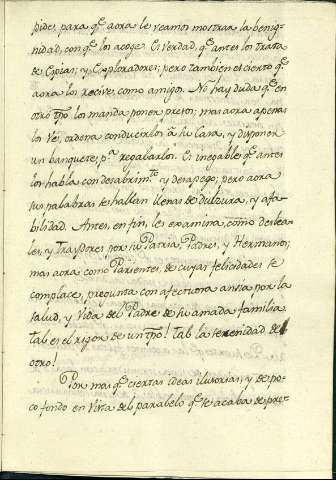 pide, para q.e aora le veamos mostrar la benig-
nidad, con q.e los acoge. Es verdad, q.e antes los trata
de Espias, y Exploradores; pero tambien es cierto q.e
aora los recive como amigos. No hay duda q.e en
otro tpo los manda poner presos; mas aora apenas
los vé, ordena conducirlos à su Casa, y disponen
un banquete p.a regalarlos. Es inegable q.e antes
los habla con desabrim.to y desapego; pero aora
sus palabras se hallan llenas de dulzura, y afa-
bilidad. Antes, en fin, les examina, como deslea-
les, y Traydores por su Patria, Padre, y Hermano;
mas aora como Parientes de cuyas felicidades se
complace, pregunta con afectuosa ansia por la
salud, y Vida del Padre de su amada familia
tal es el rigor de un tpo! tal la serenidad de
otro!
Por mas q.e ciertas ideas ilusorias, y de po-
co fondo en vista del paralelo q.e se acaba de pres-